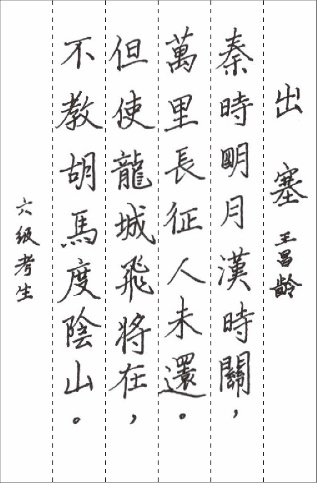 出塞 王昌龄
秦時明月漢時關，
萬里長征人未還。
但使龍城飛將在，
不教胡馬度陰山。
六級考生